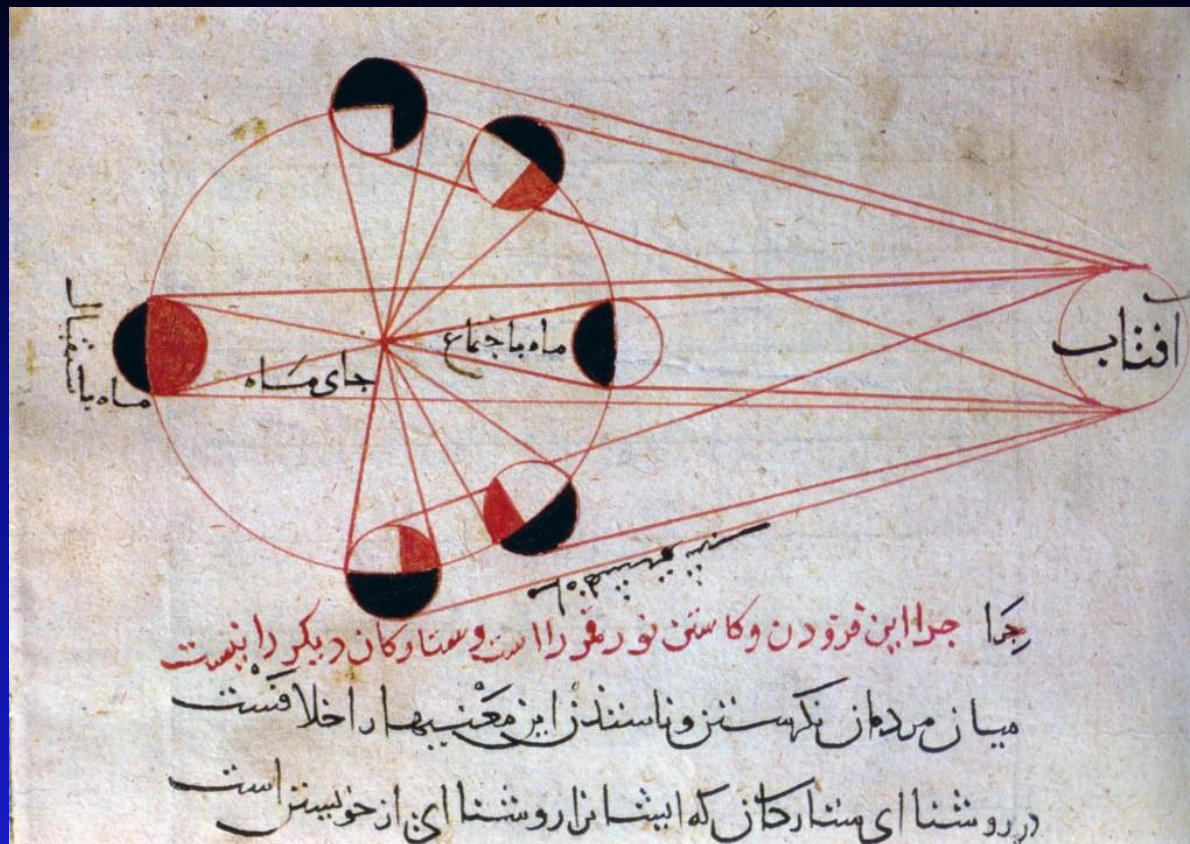 افتاب
ماه باجتماع
جای مَاه
ماه باستقبال
چرا جرا این فزودن و کاستن نور قمر را است و ستارکان دیکر را نیست
میان مردمان نکرستن و ناسندن این معنیها را اخلافَسْت
در روشنا ای ستارکان که ایشانرا روشنا ای از خویشتن است